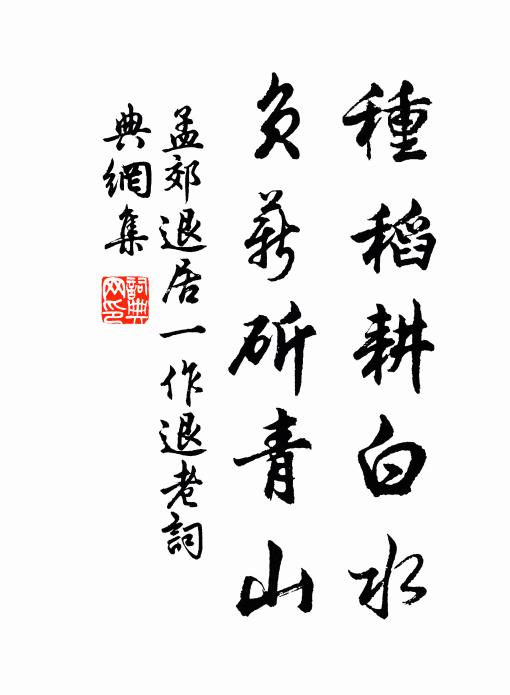 種稻耕白水
負薪斫青山
孟郊退居一作退老詞
典網集
詞典
网印